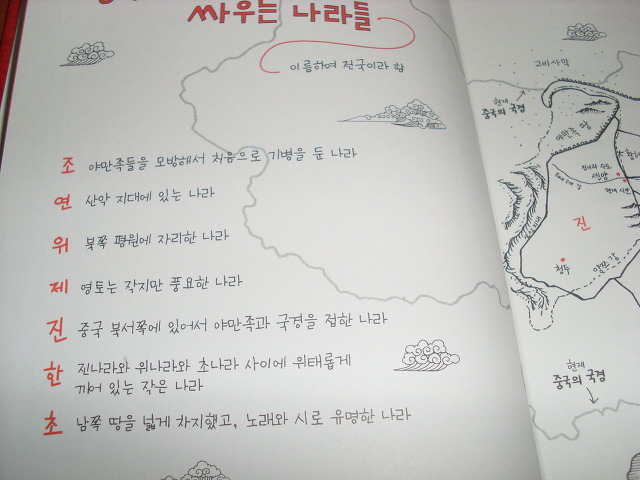 싸우는 나라들
이름하여 전국이라 함
조 야만족들을 모방해서 처음으로 기병을 둔 나라
연 산악 지대에 있는 나라
위 북쪽 평원에 자리한 나라
제 영토는 작지만 풍요한 나라
진 중국 북서쪽에 있어서 야만족과 국경을 접한 나라
한 진나라와 위나라와 초나라 사이에 위태롭게
끼어 있는 작은 나라
초 남쪽 땅을 넓게 차지했고, 노래와 시로 유명한 나라
고비사막
현재
중국의 국경
야만족 땅
진나라 수도
셴양
현재 시안
진
청두
양쯔 강
현재
중국의 국경